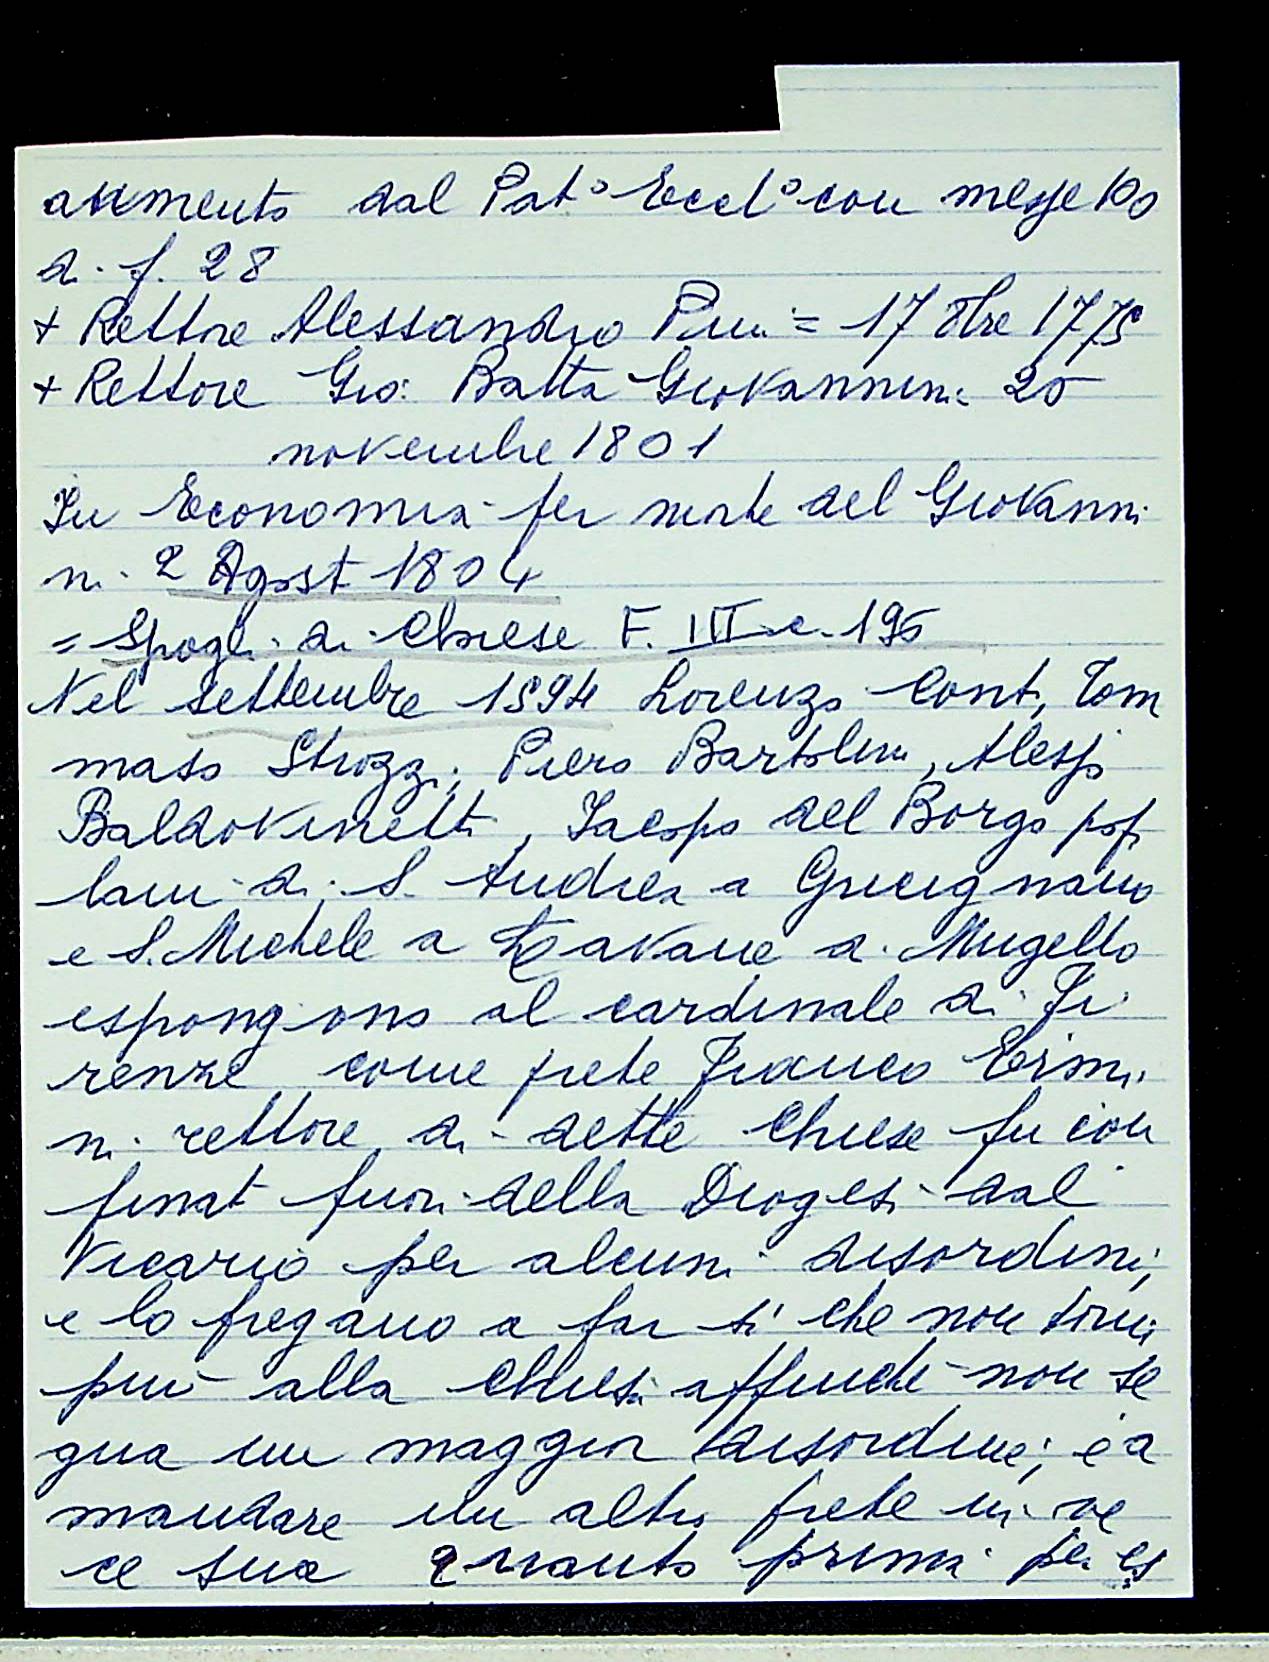 aumento dal Pat° Eccl° con messe 100
di f. 28
+ Rettore Alessandro Pini = 17 8bre 1775
+ Rettore Gio: Batta Giovannini 20
novembre 1801
In Economia per morte del Giovanni
ni 2 Agost 1804
= Spogli di Chiese F. III c. 195
Nel settembre 1594 Lorenzo Conti, Tom
maso Strozzi, Piero Bartolini, Aless°
Baldovinetti, Iacopo del Borgo popo
lani di S. Andrea a Gricignano
e S. Michele a Lavane di Mugello
espongono al cardinale di Fi
renze come prete Franco Ermi
ni rettore di dette Chiese fu con
finat fuori della Diogesi dal
Vicario per alcuni disordini,
e lo pregano a far sì che non torni
più alla Chiesa affinché non se
gua un maggior disordine; e a
mandare un altro prete in ve
ce sua quanto prima per es